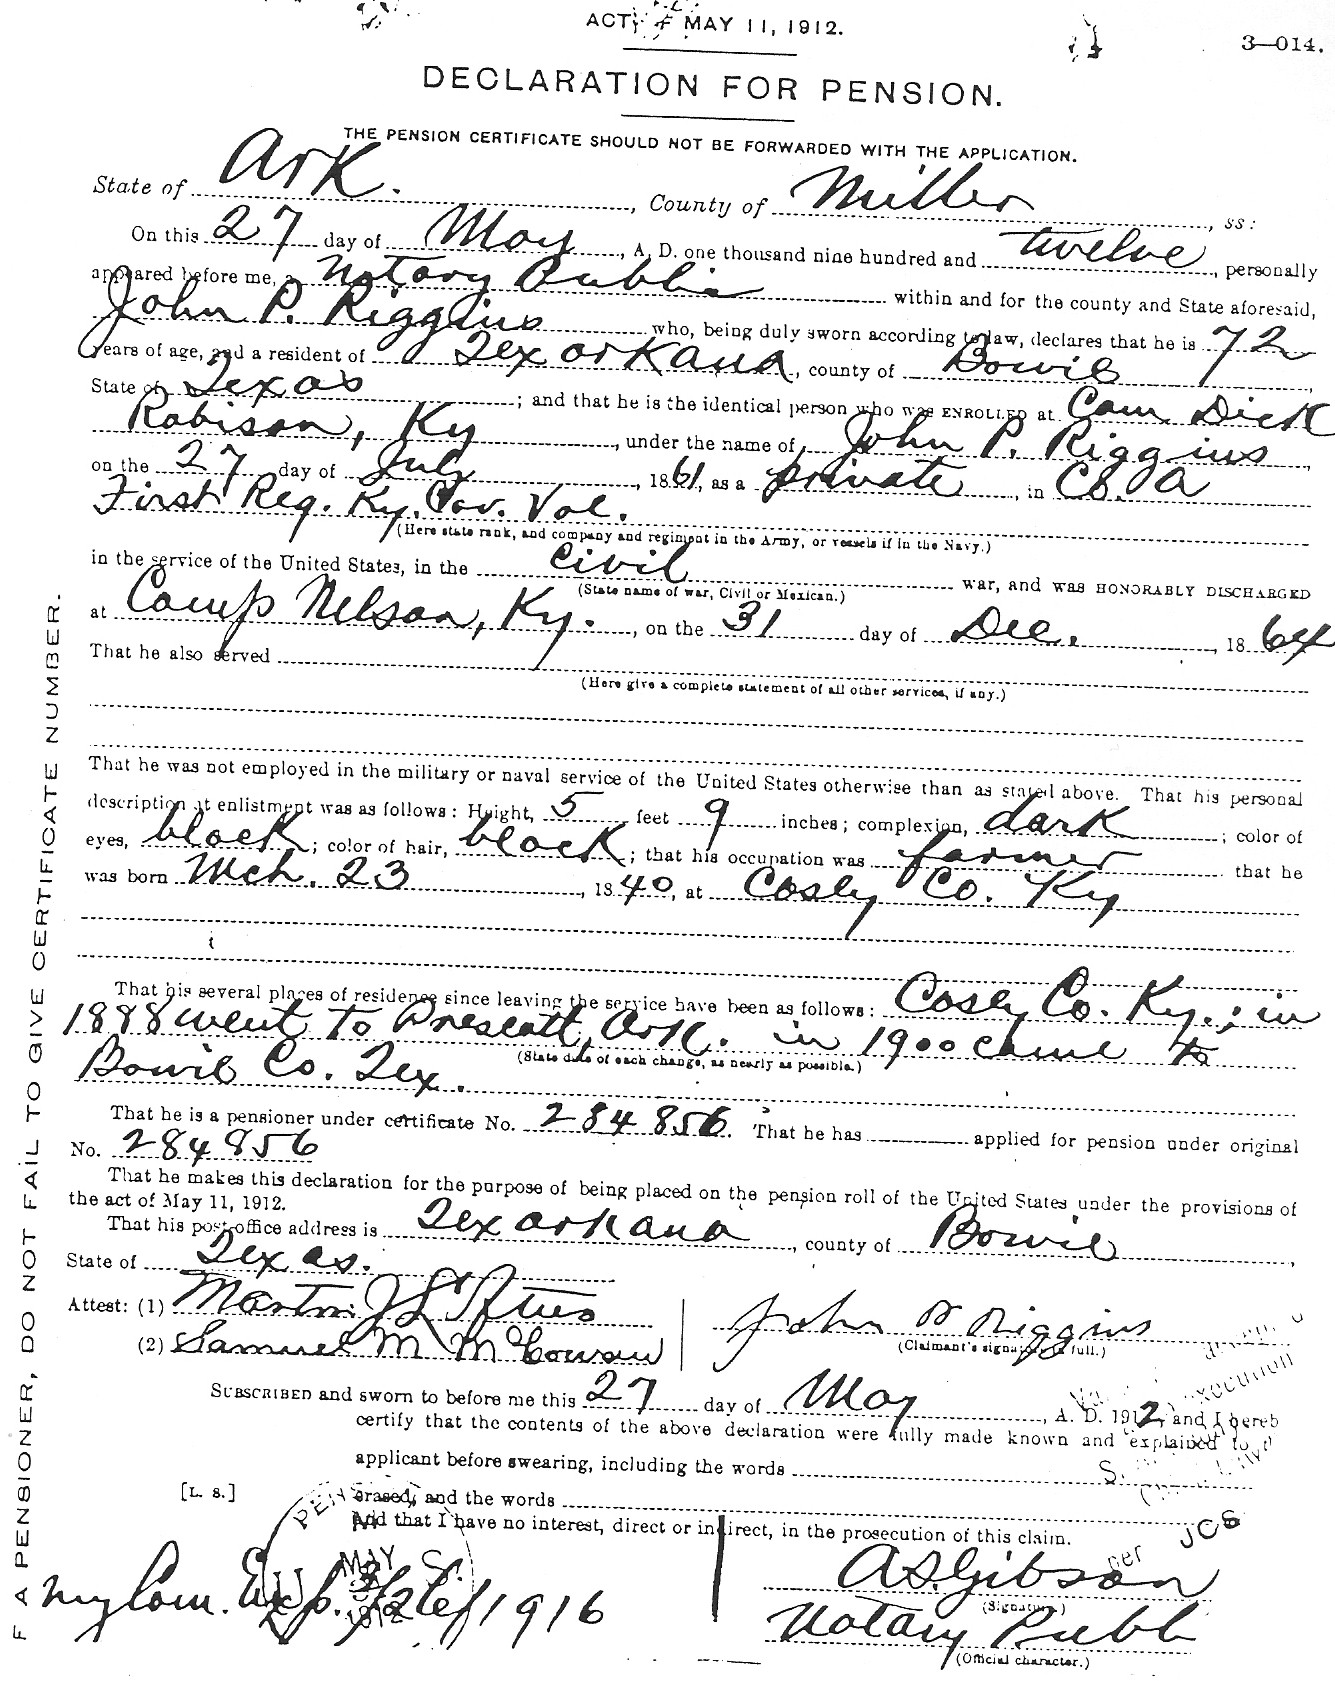 ACT OF MAY 11, 1912.
3—014.
DECLARATION FOR PENSION.
THE PENSION CERTIFICATE SHOULD NOT BE FORWARDED WITH THE APPLICATION.
State of Ark. , County of Miller , ss:
On this 27 day of May , A. D. one thousand nine hundred and twelve , personally
appeared before me, a Notary Public within and for the county and State aforesaid,
John P. Riggins who, being duly sworn according to law, declares that he is 72
years of age, and a resident of Texarkana , county of Bowie ,
State of Texas ; and that he is the identical person who was ENROLLED at Cam Dick
Robison, Ky , under the name of John P. Riggins ,
on the 27 day of July , 1861, as a private , in Co. A
First Reg. Ky. Cav. Vol.
(Here state rank, and company and regiment in the Army, or vessels if in the Navy.)
in the service of the United States, in the Civil war, and was HONORABLY DISCHARGED
(State name of war, Civil or Mexican.)
at Camp Nelson, Ky. , on the 31 day of Dec. , 1864
That he also served
(Here give a complete statement of all other services, if any.)
That he was not employed in the military or naval service of the United States otherwise than as stated above. That his personal
description at enlistment was as follows: Height, 5 feet 9 inches; complexion, dark ; color of
eyes, black ; color of hair, black ; that his occupation was farmer that he
was born Mch. 23 , 1840, at Casey Co. Ky
That his several places of residence since leaving the service have been as follows: Casey Co. Ky.; in
1888 went to Prescott, Ark. in 1900 came to
(State date of each change, as nearly as possible.)
Bowie Co. Tex.
That he is a pensioner under certificate No. 284856. That he has applied for pension under original
No. 284856
That he makes this declaration for the purpose of being placed on the pension roll of the United States under the provisions of
the act of May 11, 1912.
That his post-office address is Texarkana , county of Bowie ,
State of Texas.
Attest: (1) Martin
John P Riggins
(Claimant's signature in full.)
(2) Samuel M McCowan
SUBSCRIBED and sworn to before me this 27 day of May , A. D. 1912, and I hereb
certify that the contents of the above declaration were fully made known and explained to
applicant before swearing, including the words
[L. S.]
erased, and the words
And that I have no interest, direct or indirect, in the prosecution of this claim.
per JCS
A S. Gibson
(Signature.)
My Com. Exp. 1916
Notary Publ
(Official character.)
F A PENSIONER, DO NOT FAIL TO GIVE CERTIFICATE NUMBER.